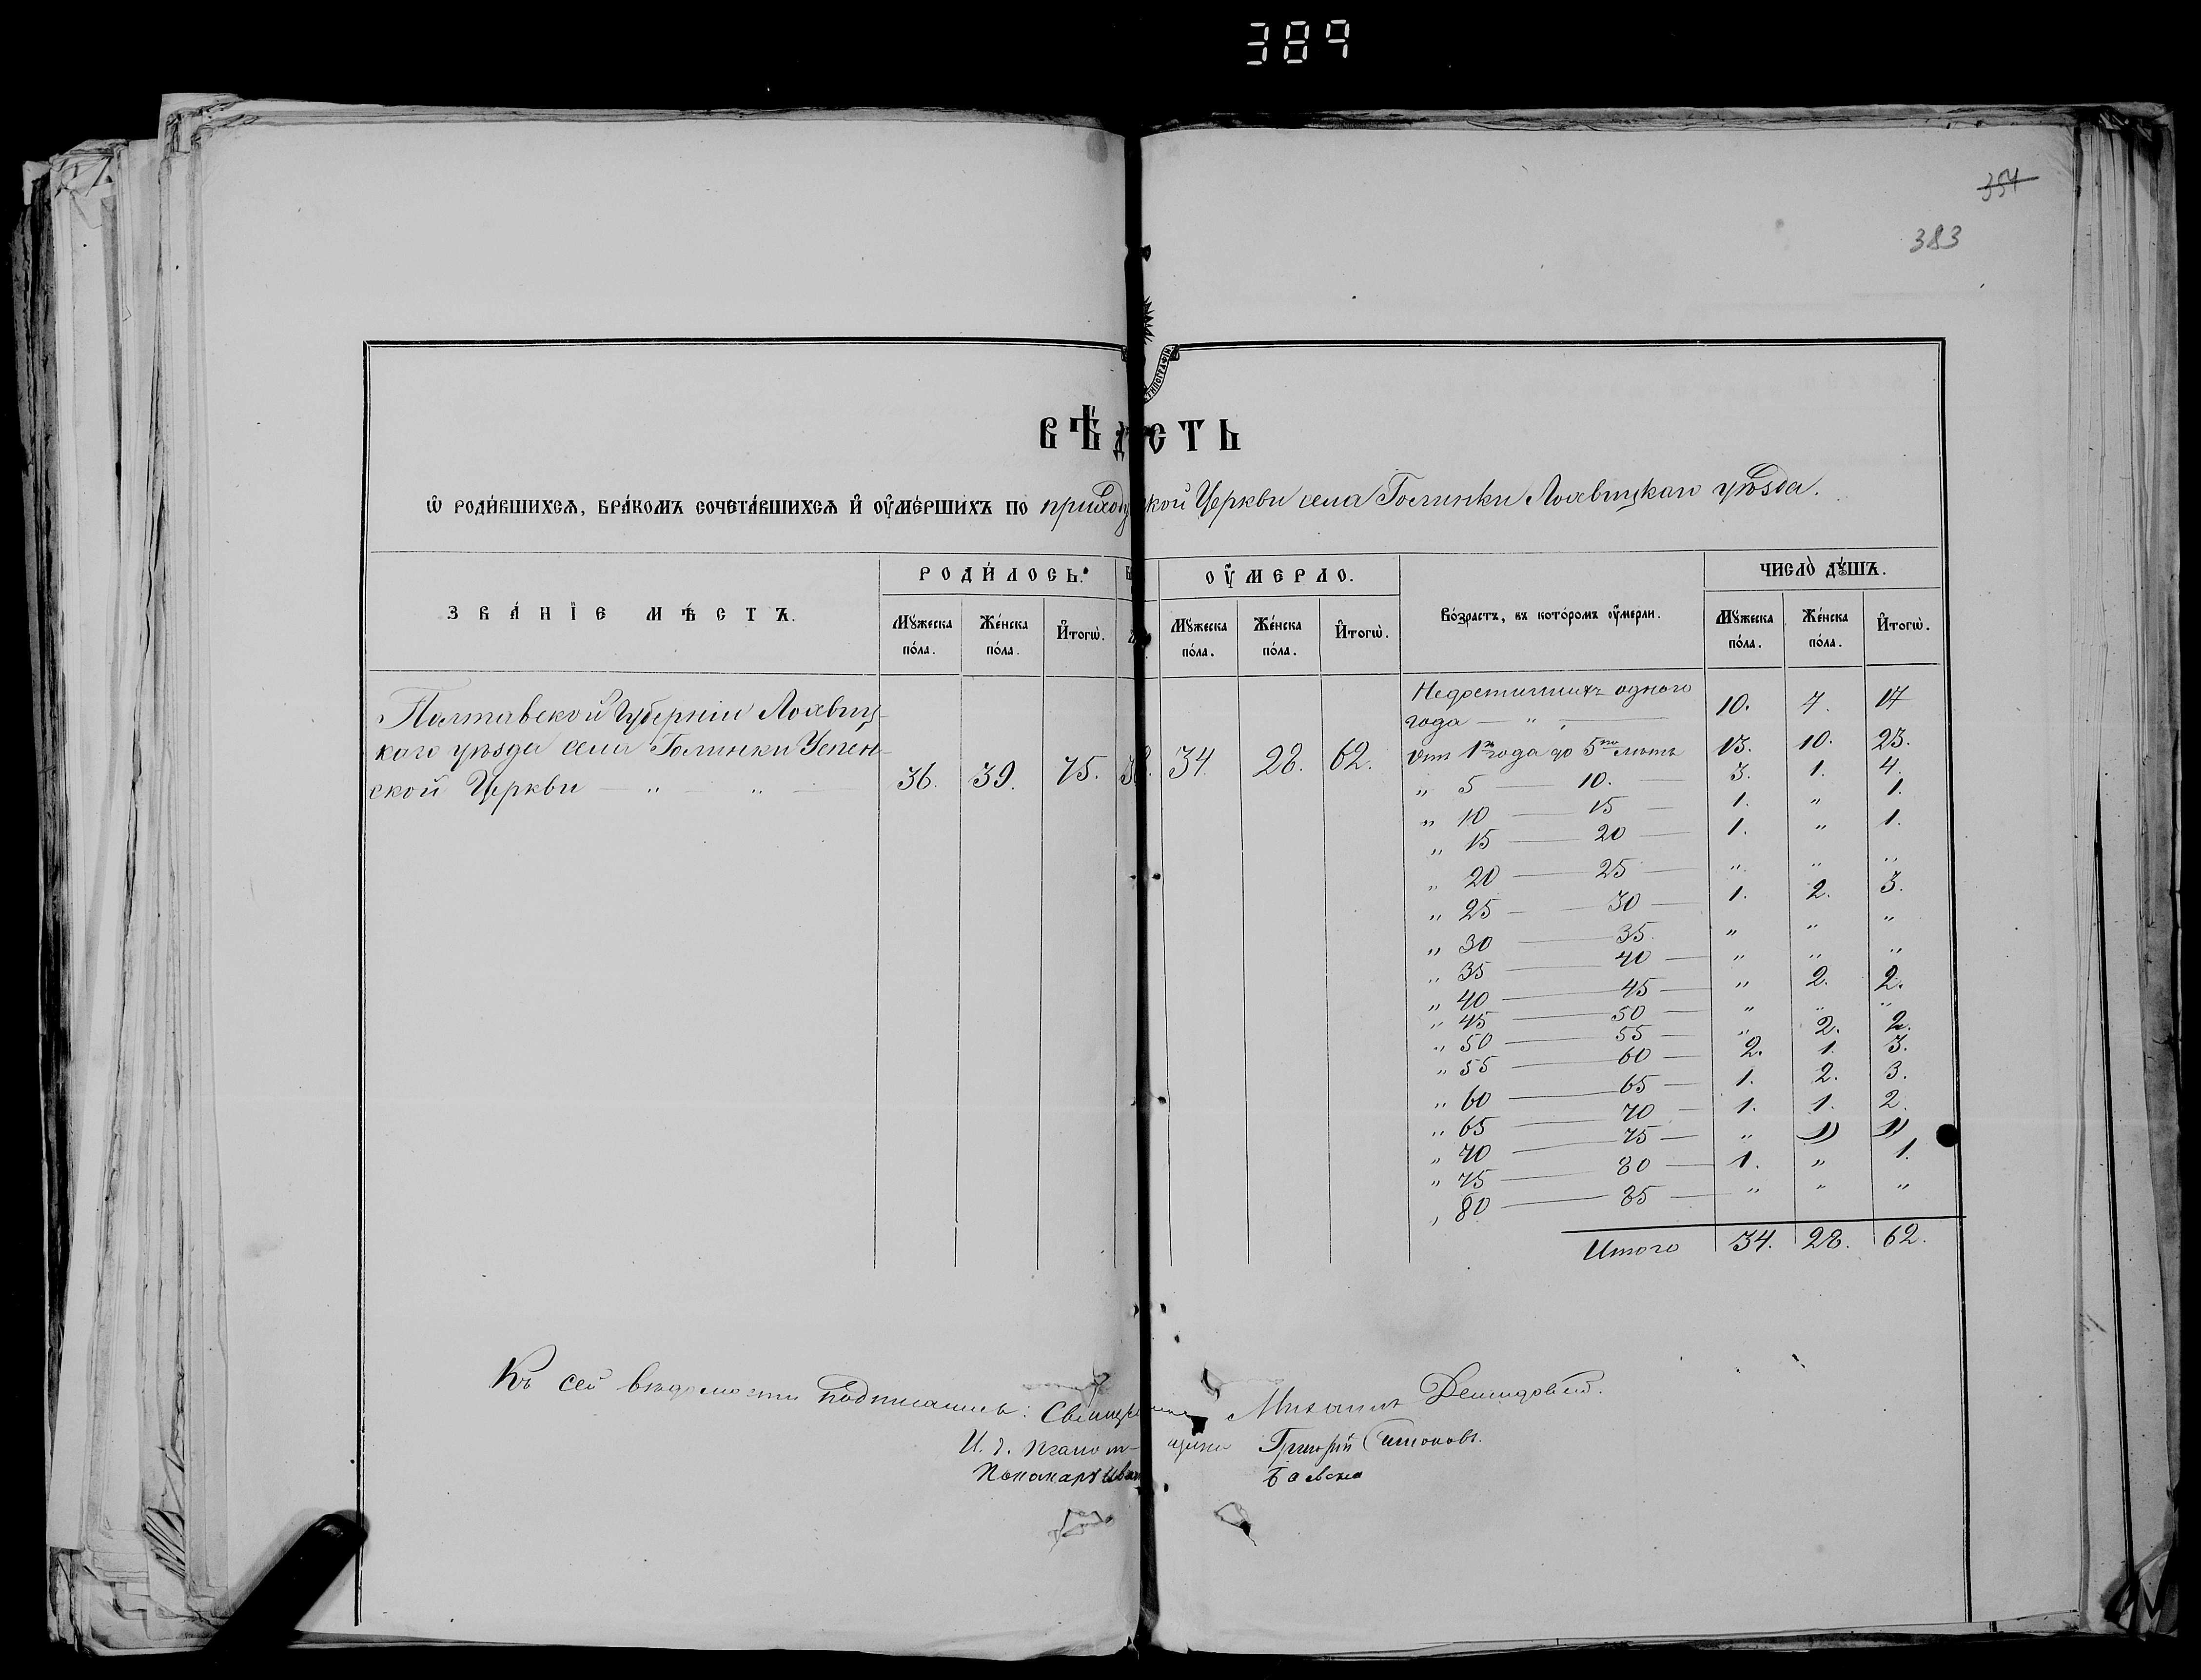 389
354
383
ТИПОГРАФІИ.
ВѢД СТЬ
Ѡ РОДИ́ВШИХСѦ, БРА́КОМЪ СОЧЕТА́ВШИХСѦ И҆ ОУ҆МЕ́РШИХЪ ПО приход ской Церкви села Голинки Лохвицкаго уѣзда.
ЗВА́НІЕ МѢ́СТЪ. РОДИ́ЛОСЬ. ОУ҆́МЕРЛО. Во́зрастъ, въ кото́ромъ оу҆́мерли. ЧИСЛО̀ ДꙊ́ШЪ.
Мꙋ́жеска по́ла. Же́нска по́ла. И҆тогѡ̀. Мꙋ́жеска по́ла. Же́нска по́ла. И҆тогѡ̀. Мꙋ́жеска по́ла. Же́нска по́ла. И҆тогѡ̀.
Полтавской Губерніи Лохвиц-
каго уѣзда села Голинки Успен-
ской Церкви — „ — „ — 36. 39. 75. 34. 28. 62.
Недостигшихъ одного
года — „ — 10. 7. 17
Отъ 1го года до 5ти лѣтъ 13. 10. 23.
„ 5 — 10. — 3. 1. 4.
„ 10 — 15 — 1. „ 1.
„ 15 — 20 — 1. „ 1.
„ 20 — 25 — „ „ „
„ 25 — 30 — 1. 2. 3.
„ 30 — 35. „ „ „
„ 35 — 40 — „ „ „
„ 40 — 45 — „ 2. 2.
„ 45 — 50 — „ „ „
„ 50 — 55 — „ 2. 2.
„ 55 — 60 — 2. 1. 3.
„ 60 — 65 — 1. 2. 3.
„ 65 — 70 — 1. 1. 2.
„ 70 — 75 — „ „ „
„ 75 — 80 — 1. „ 1.
„ 80 — 85 — „ „ „
Итого 34. 28. 62.
Къ сей вѣдомости подписались: Священникъ Михаилъ Демидовскій.
И. д. псаломщика Григорій Симоновъ.
Пономарь Иван